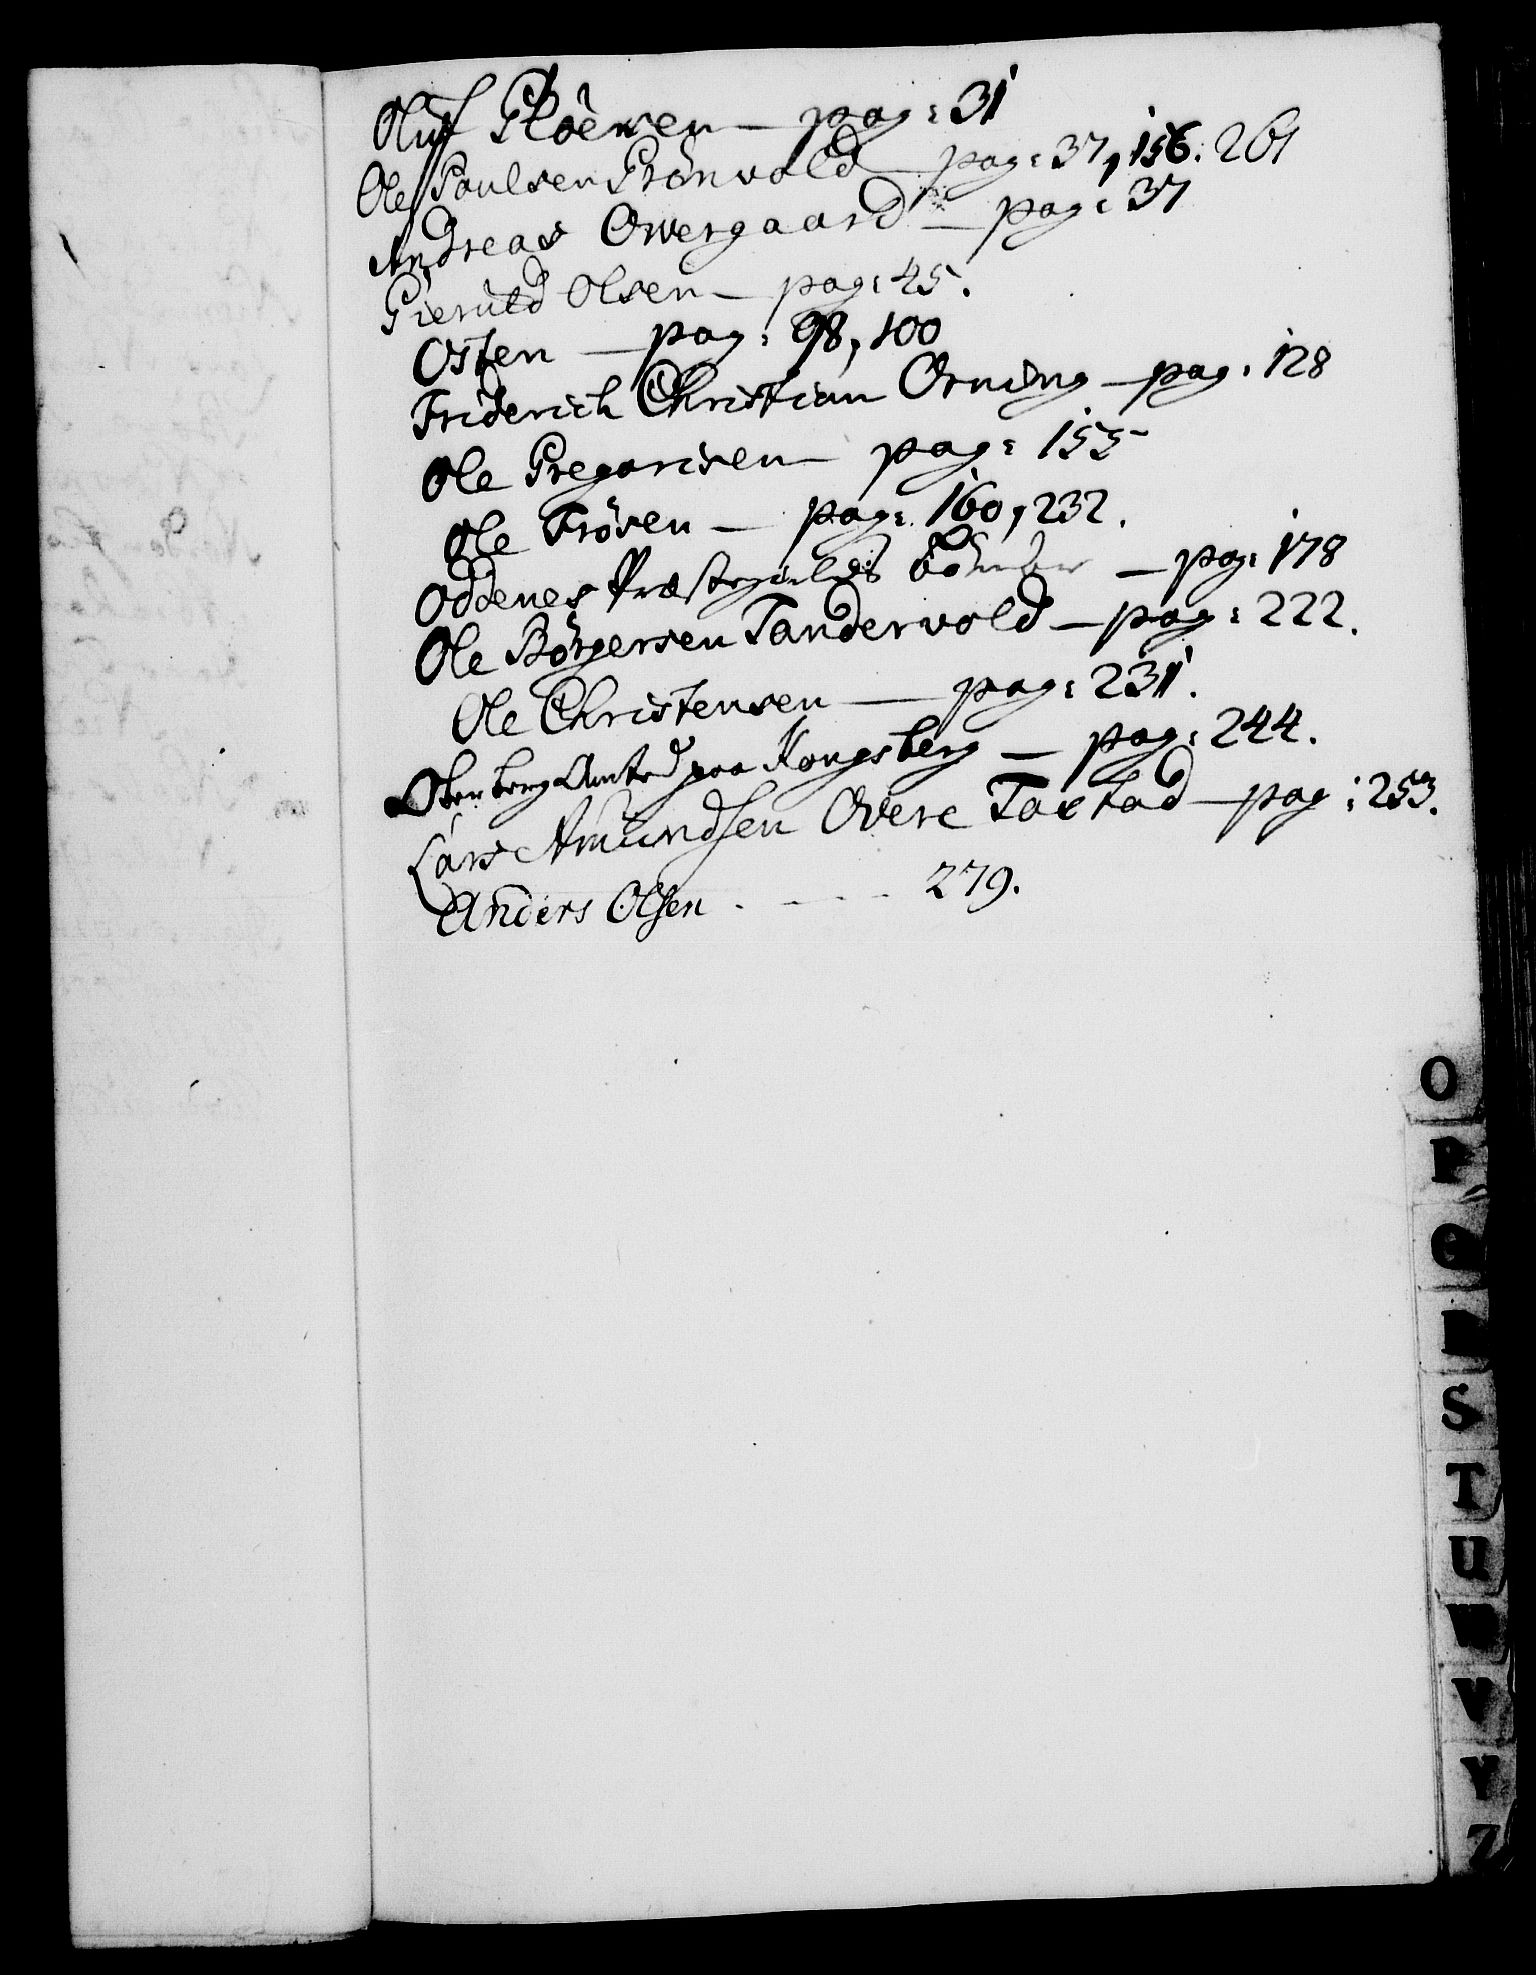 Oluf Ploeksen — pag: 31
Ole Poulsen Grönvold — pag: 37, 156. 261
Andreas Owergaard — pag: 37
Gierulld Olsen — pag: 45.
Osten — pag: 98, 100
Friderich Christian Orning — pag: 128
Ole Gregorisen — pag: 155
Ole Frösen — pag: 160, 232.
Oddenes Præstegields — pag: 178
Ole Börgersen Tandervold — pag: 222.
Ole Christensen — pag: 231.
Oberberg Amted paa Kongsberg — pag: 244.
Lars Amundsen Overe Taxstad — pag: 253.
Anders Olsen . - - - - 279.
O
P
Q
R
S
T
U
W
V
Y
Z